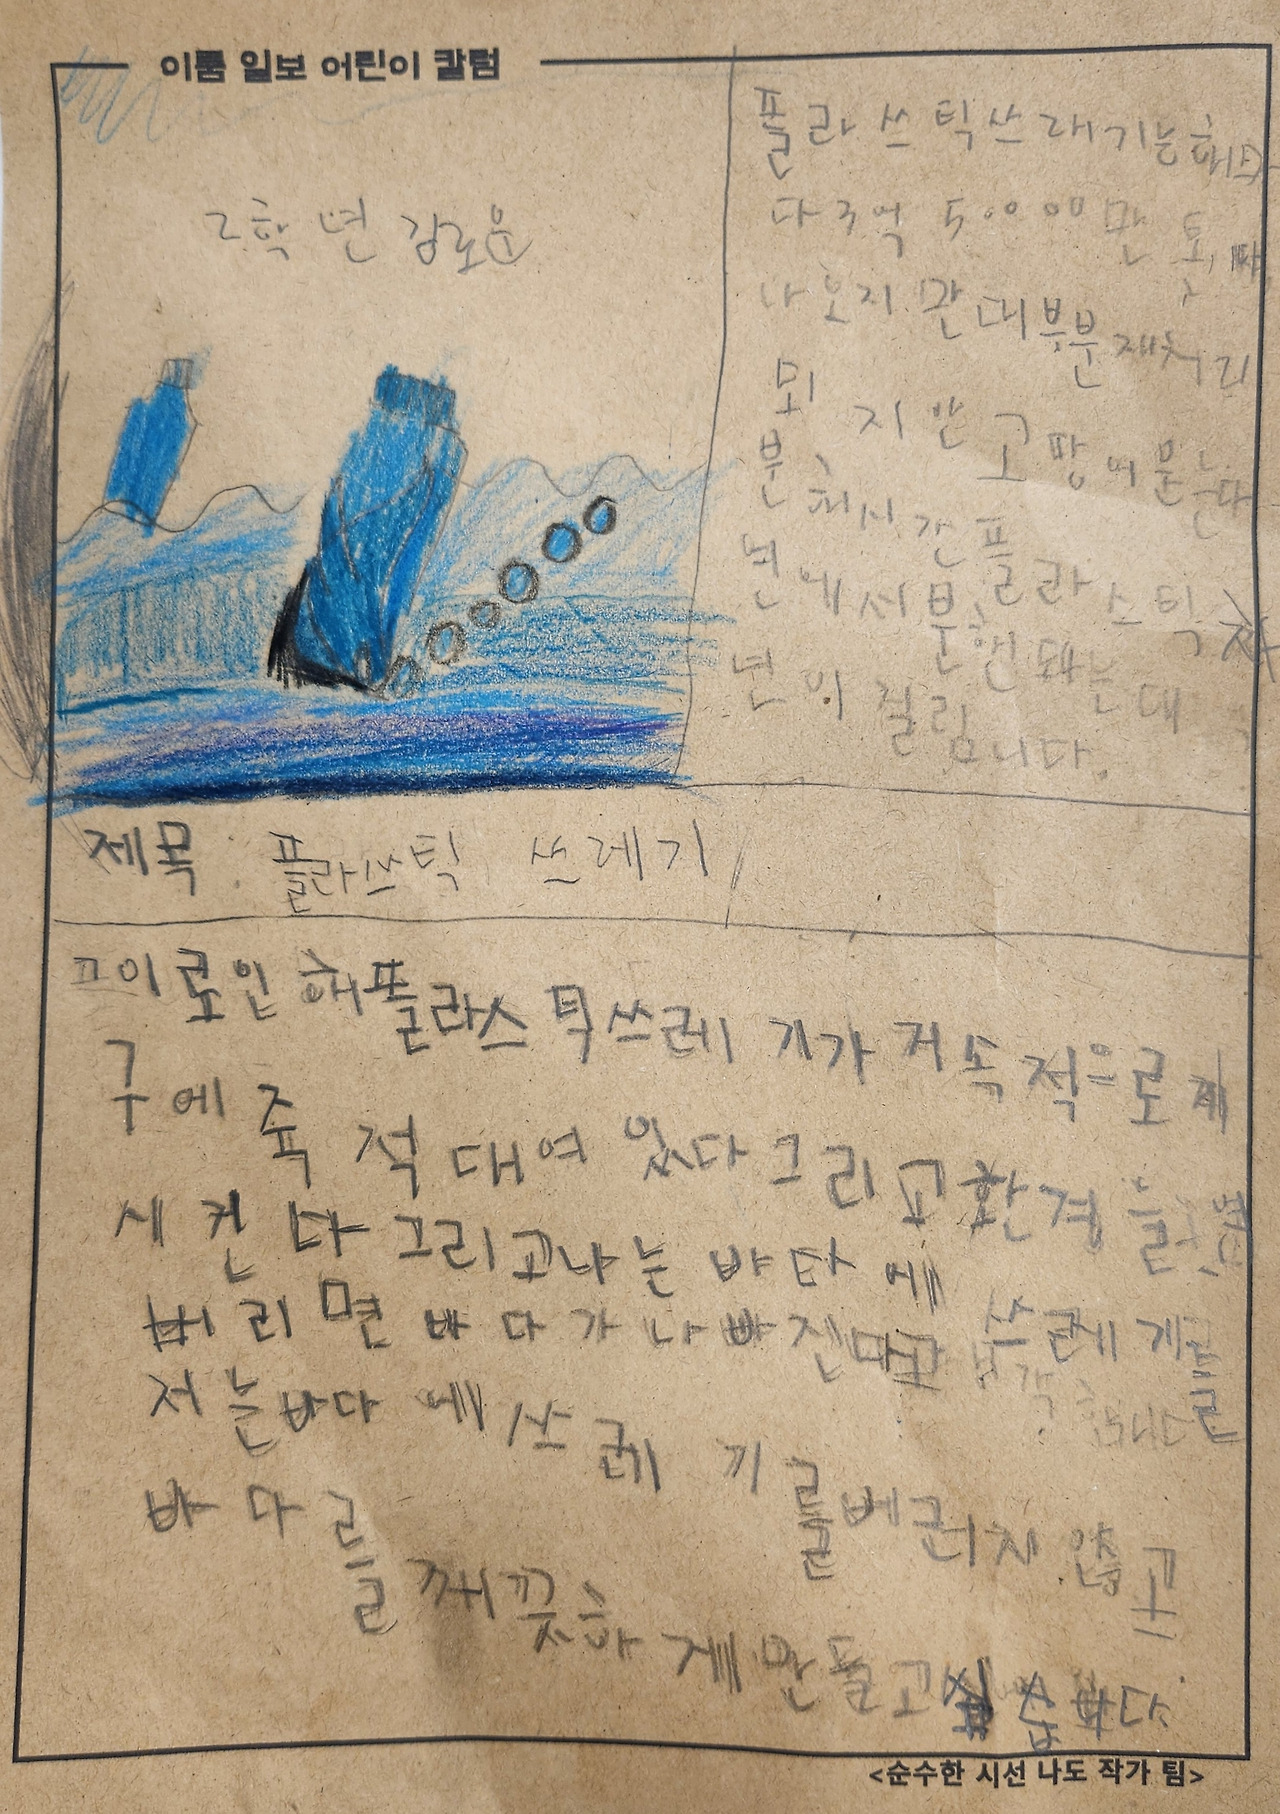 이룸 일보 어린이 칼럼
2학년 김로운
플라쓰틱쓰래기는해마
다 3억 50000만 톤
나오지만 대부분 재처리
되지 안고 땅에 묻는다
분해시간 플라스틱
년에서 분핸돼는대
년이 걸림니다.
제목: 플라쓰틱 쓰레기
끄이로인해플라스틱쓰레기가 저속적으로 지
구에 죽적대여 있다 그리고 환경를
시킨다 그리고나는 바타에 쓰레기를
버리면 바다가 나빠진다고 생각합니다
저는바다에 쓰레기를 베리지 않고
바다를 깨끗하게 만들고 십습니다.
<순수한 시선 나도 작가 팀>